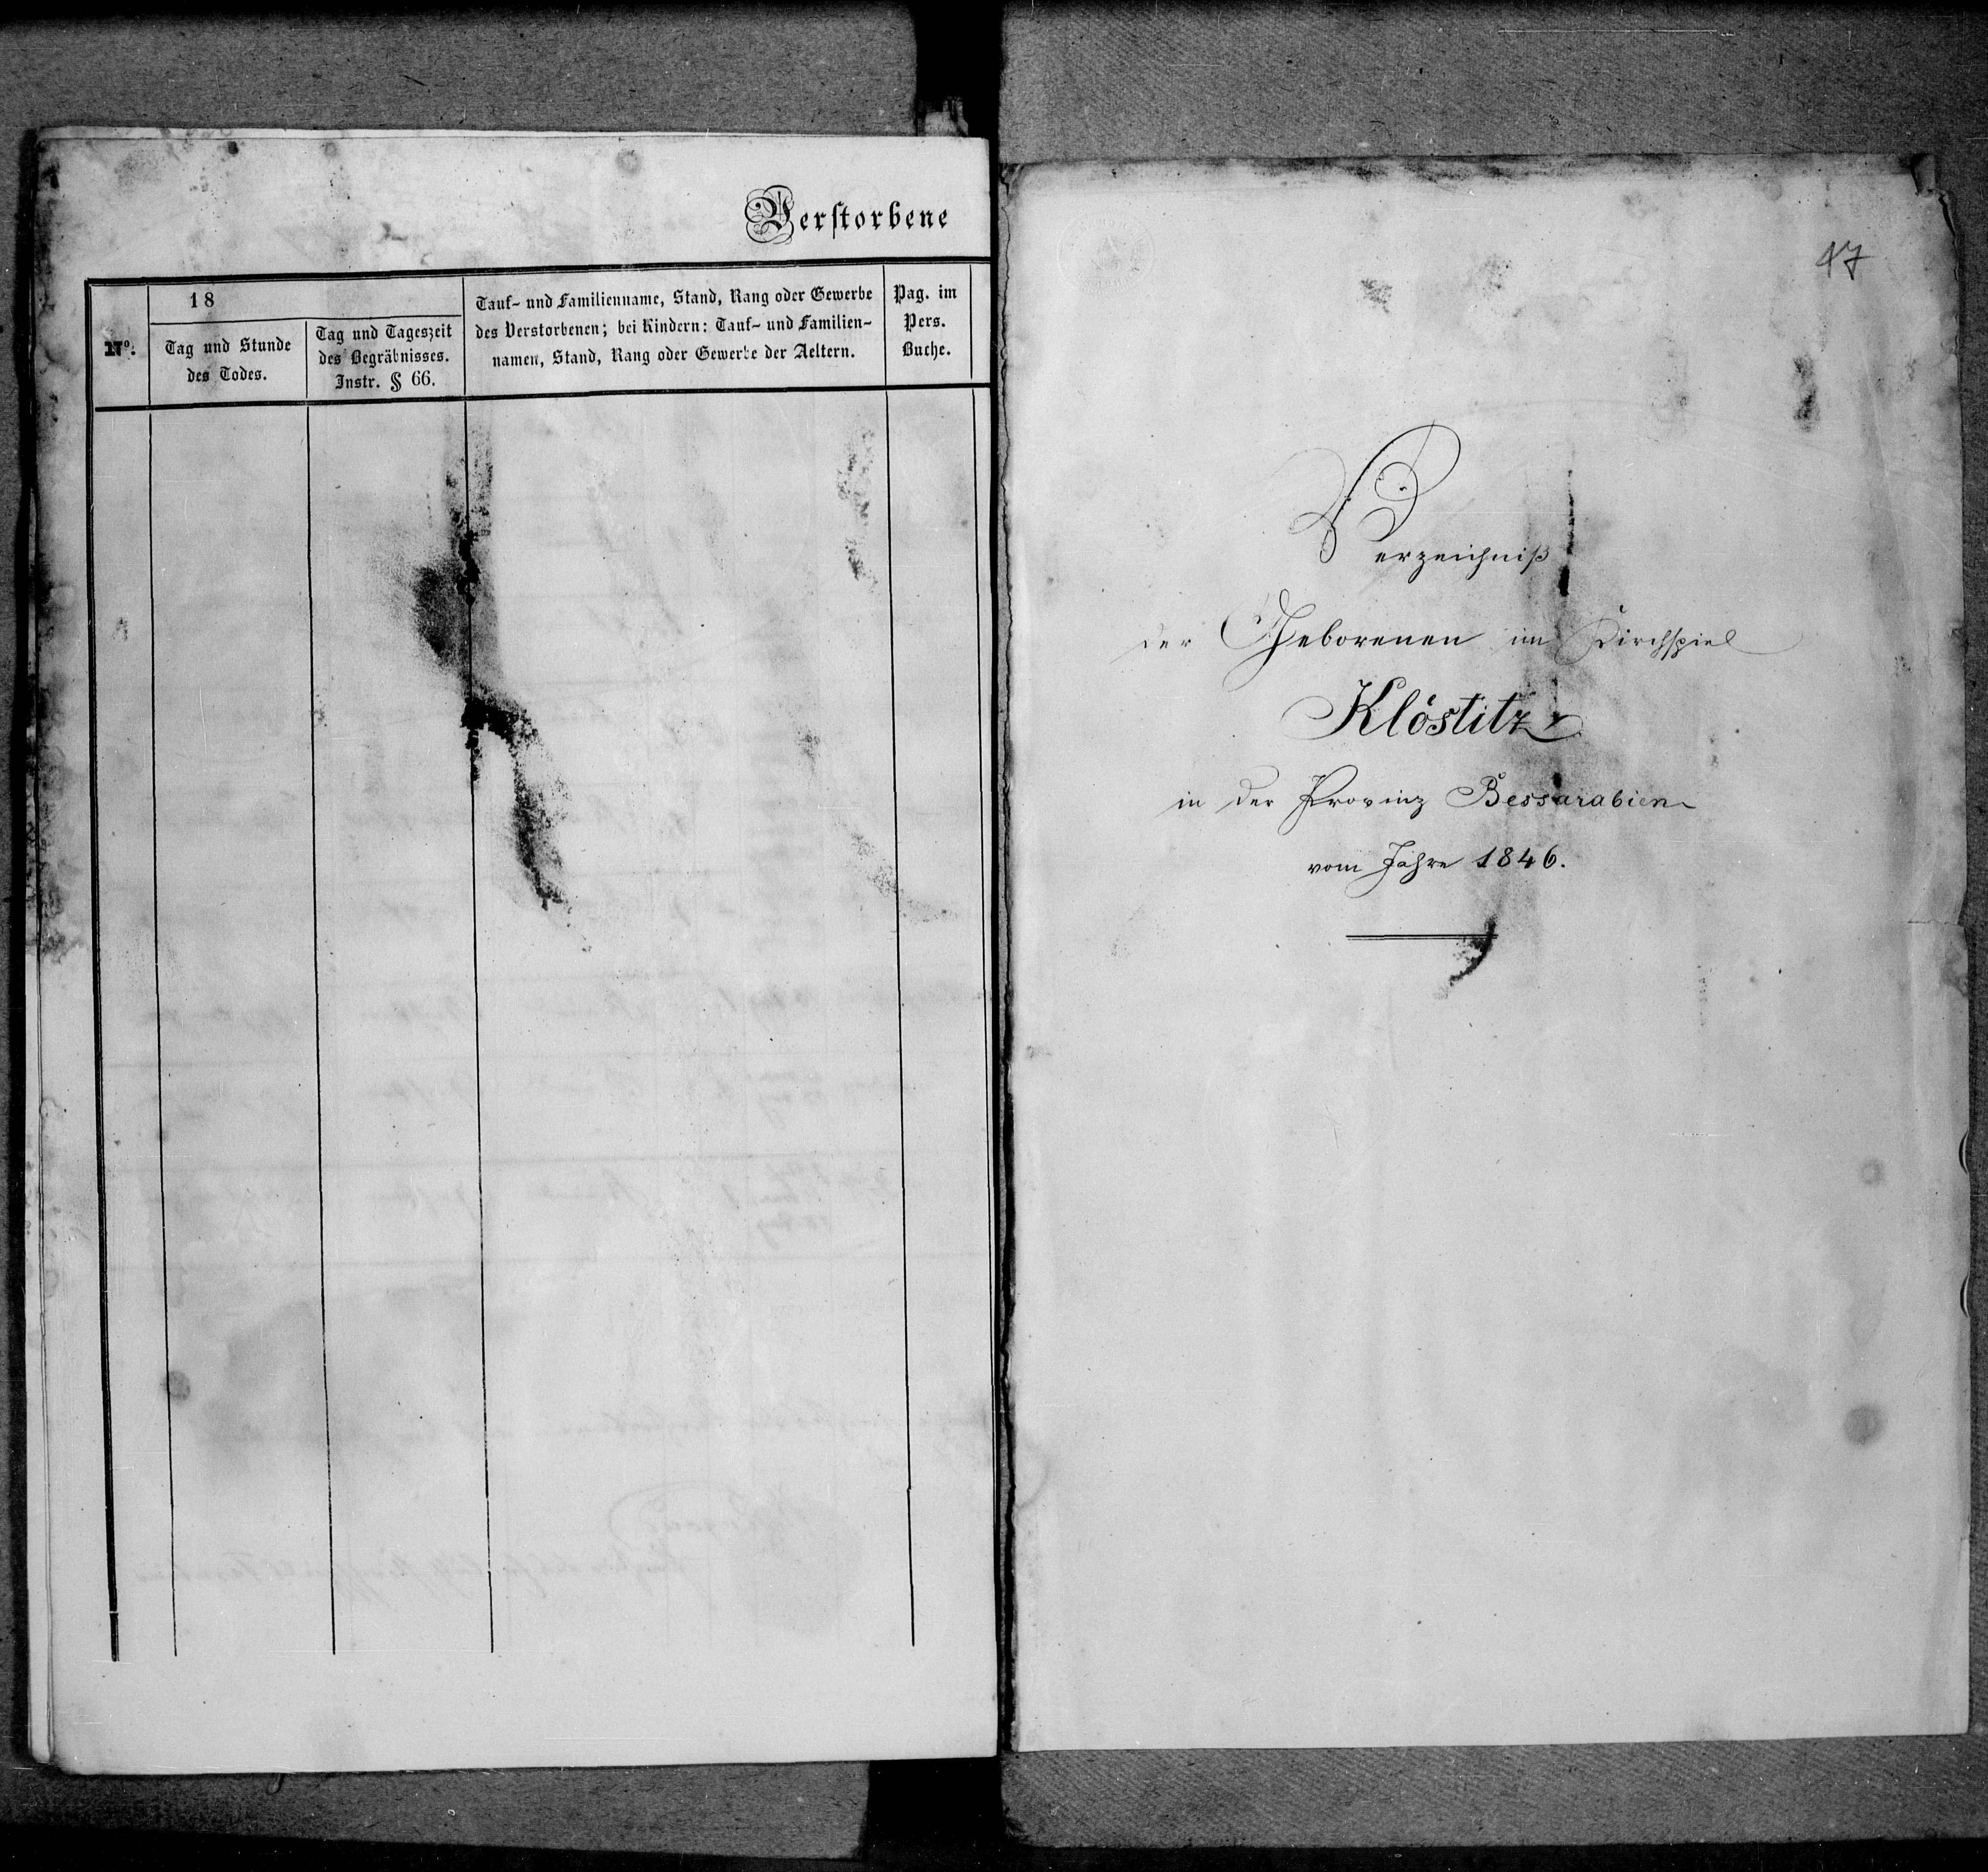 Verstorbene
Nº:
18
Tag und Stunde
des Todes.
Tag und Tageszeit
des Begräbnisses.
Instr. § 66.
Tauf- und Familienname, Stand, Rang oder Gewerbe
des Verstorbenen; bei Kindern: Tauf- und Familien-
namen, Stand, Rang oder Gewerbe der Aeltern.
Pag. im
Pers.
Buche.
47
Verzeichniß
der Geborenen im Kirchspiel
Klöstitz
in der Provinz Bessarabien
vom Jahre 1846.